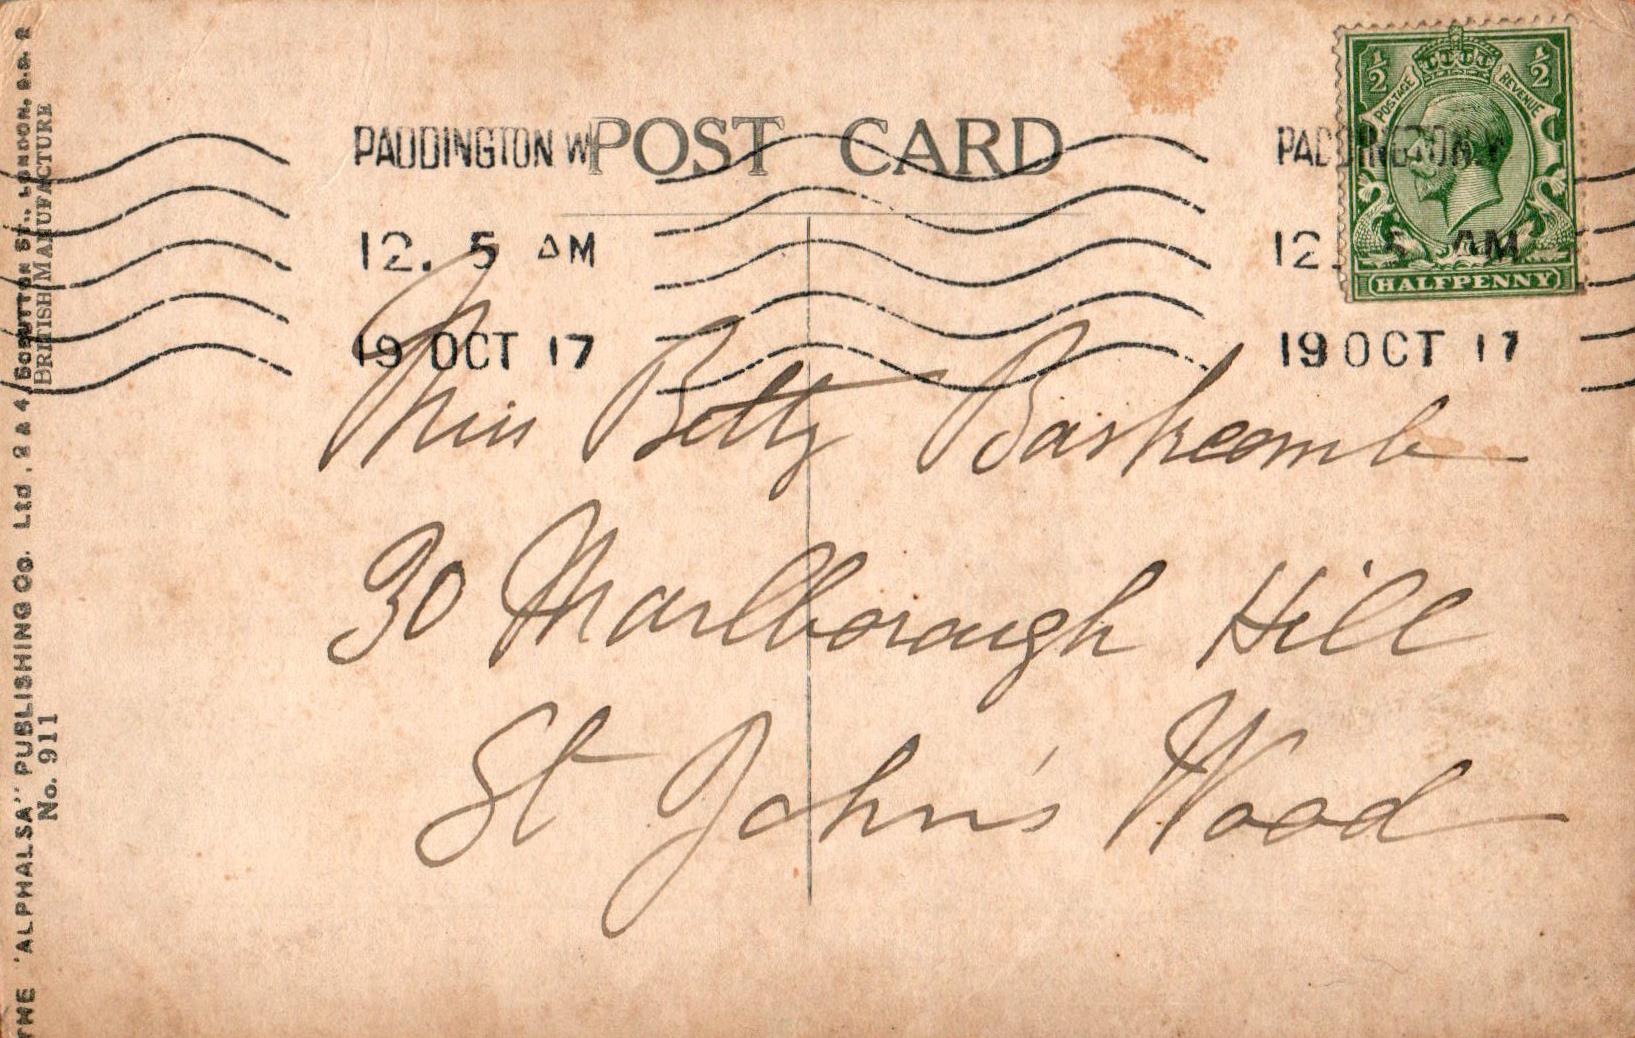 POST CARD
PADDINGTON W
12. 5 AM
19 OCT 17
PADDINGTON. W
12. 5 AM
19 OCT 17
½ ½
POSTAGE REVENUE
HALFPENNY
Miss Betty Bashcomb
30 Marlborough Hill
St John's Wood
THE "ALPHALSA" PUBLISHING Co. Ltd, 2 & 4, SCRUTTON ST., LONDON, E.C. 2
BRITISH MANUFACTURE
No. 911